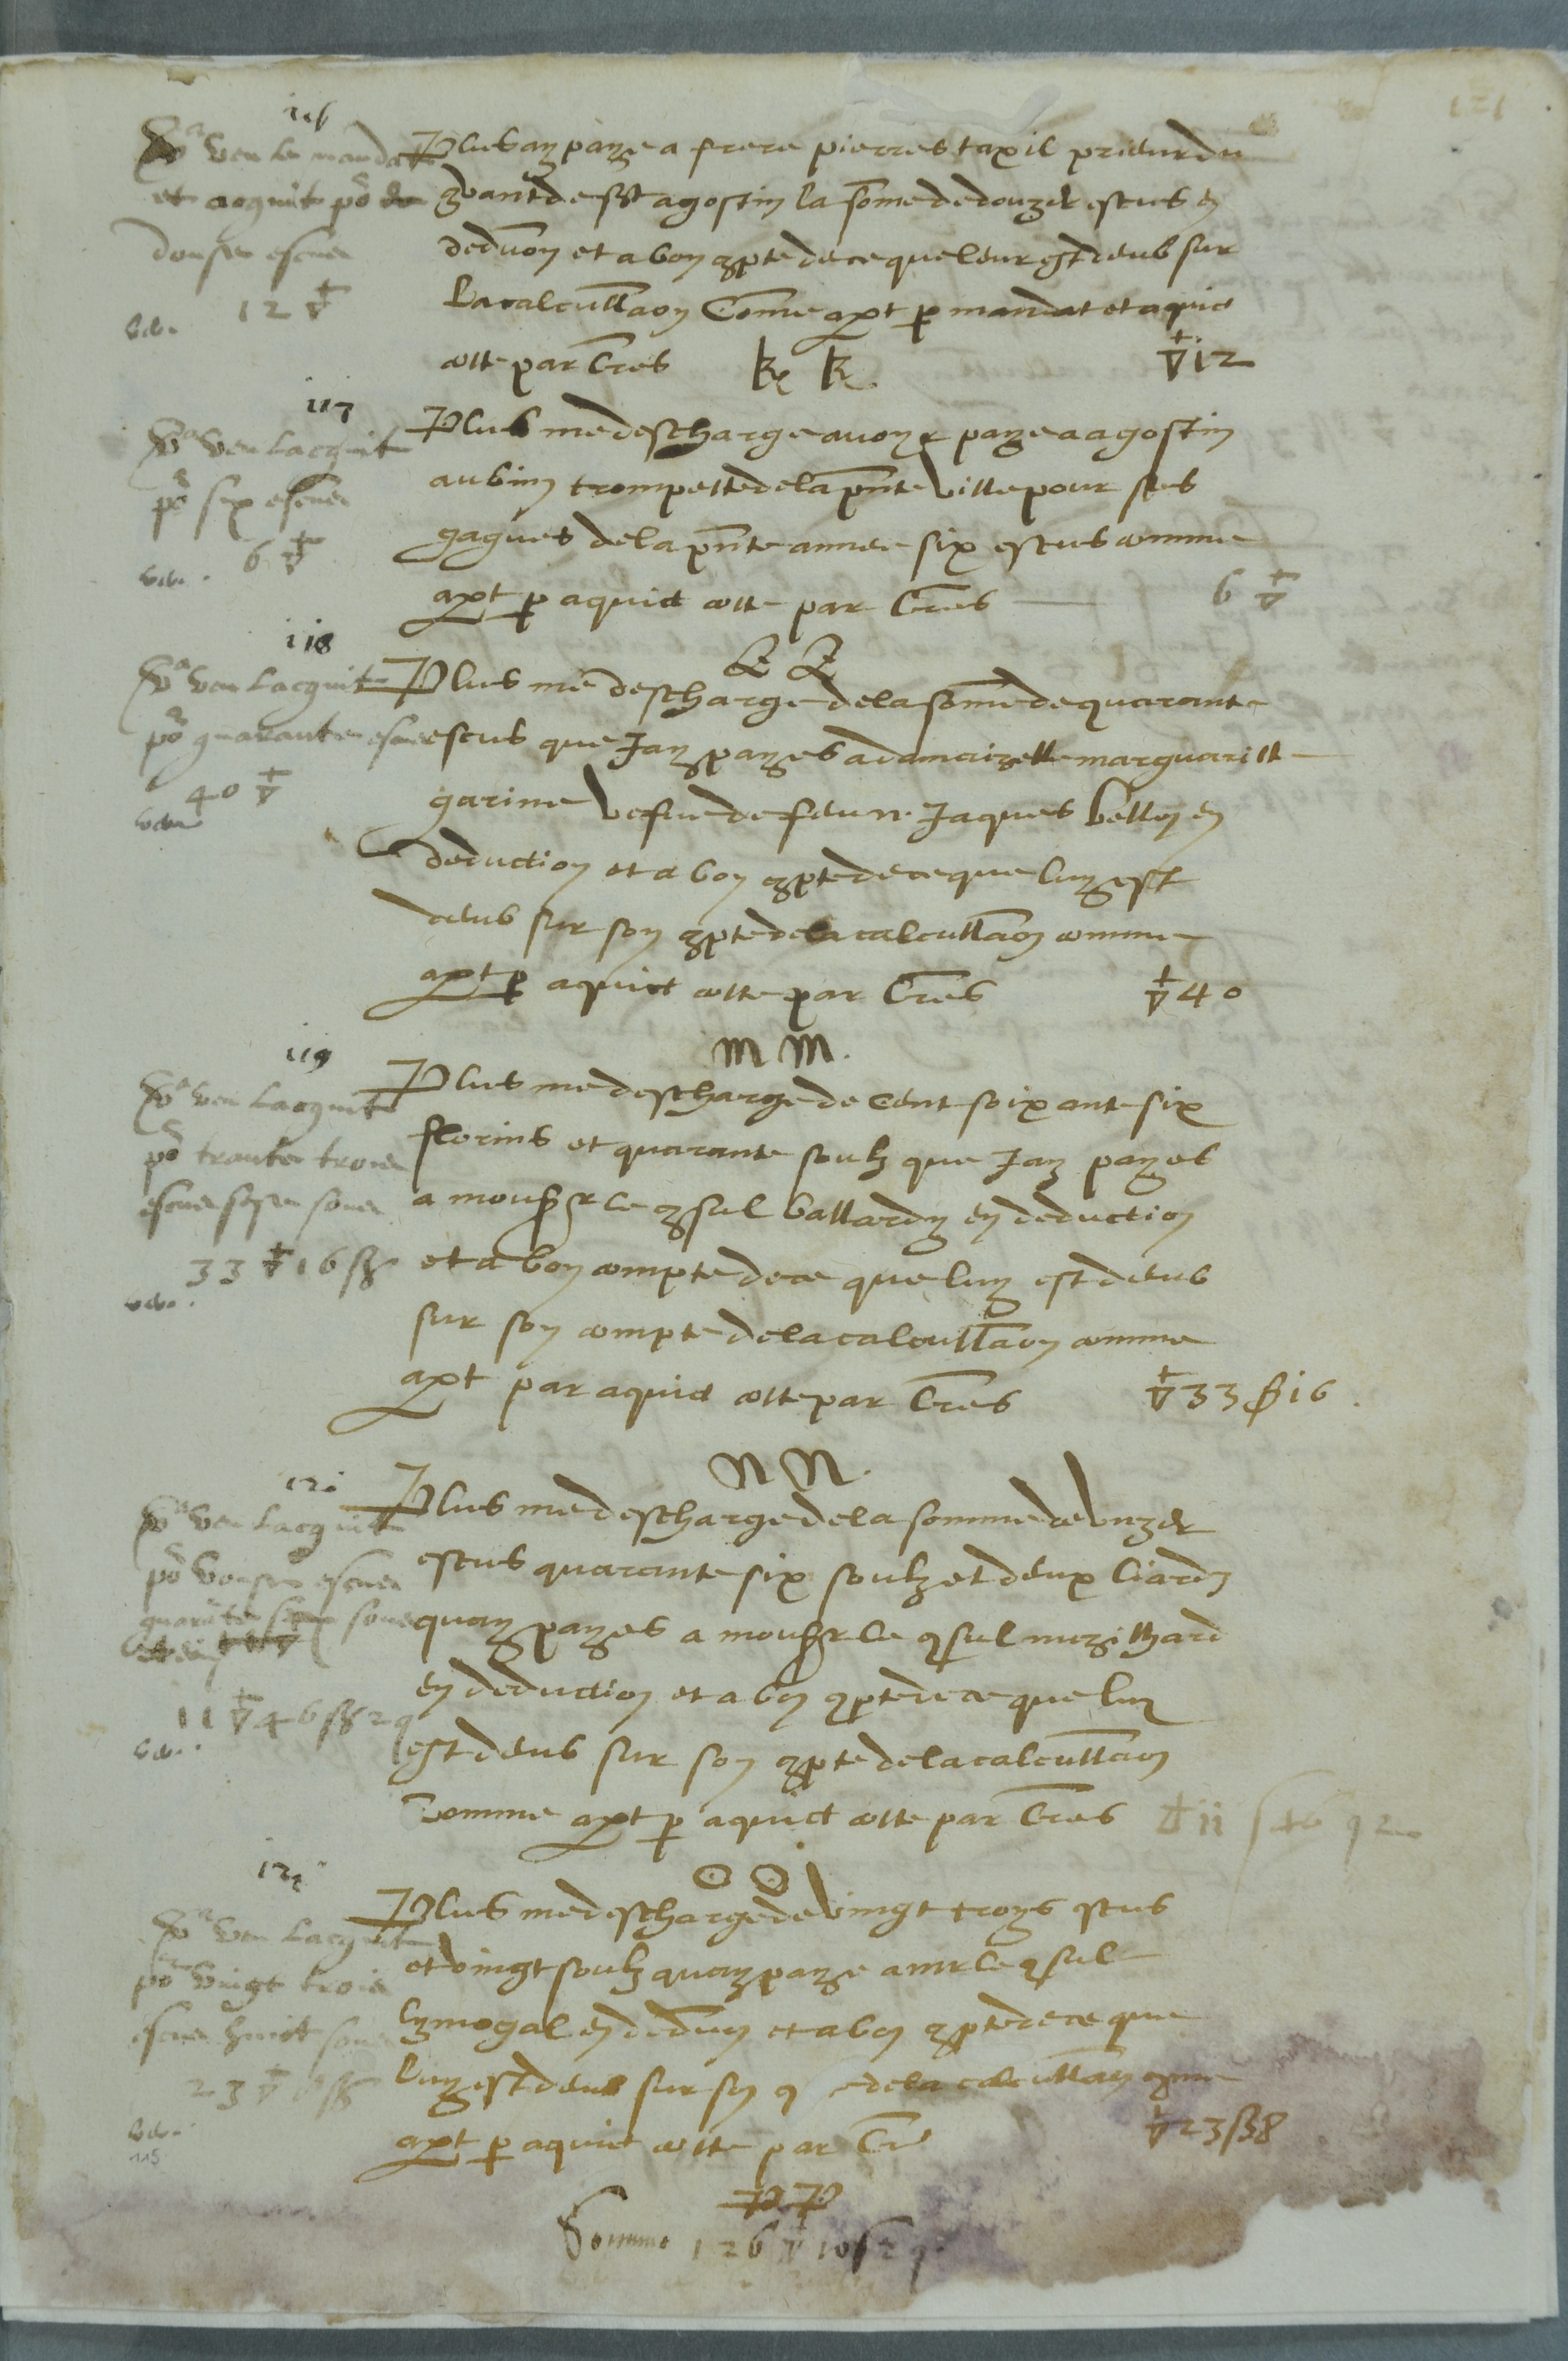 116
Va veu le mandat
et acquit po de
douse escus
12 ▽
Plus ay paye a frere pierres taxil prieur du
convant de st agostin la some de douze escus en
deduon et a bon conpte de ce que leur est deub sur
la calcullaon Comme apt p mandat et aquit
cotte par lres K K ▽ 12
117
Va veu lacquit
po six escus
6 ▽
Plus me descharge avoyr paye a agostin
aubin trompette de la pnte ville pour ses
gagues de la pnte annee six escus comme
apt p aquict cotte par lres 6 ▽
L L
118
Va veu lacquit
po quarante escus
40 ▽
Plus me descharge de la some de quarante
escus que Jay payes a damaizelle marguaritte
garine vefve de feu n. Jaques bellon en
deduction et a bon conpte de ce que luy est
deub sur son conpte de la calcullaon comme
apt p aquict cotte par lres ▽ 40
M M.
119
Va veu lacquit
po trante trois
escus sese sous
33 ▽ 16 s
Plus me descharge de cent soixante six
florins et quarante soulz que Jay payes
a monsr le consul ballardy en deduction
et a bon compte de ce que luy est deub
sur son compte de la calcullaon comme
apt par aquict cotte par lres ▽ 33 s 16.
N N.
120
Va veu lacquit
po vonse escus
quarante six sous
11 ▽ 46 s 2 q
Plus me descharge de la somme de unze
escus quarante six soulz et deux liardz
quay payes a monsr le consul muzilhard
en deduction et a bon conpte de ce que luy
est deub sur son conpte de la calcullaon
comme apt p aquict cotte par lres ▽ 11 s 46 q 2
O O
121
Va veu lacquit
po vingt trois
escus huict sous
23 ▽ 8 s
Plus me descharge de vingt troys escus
et vingt soulz quay paye a mr le consul
lymogal en deduon et a bon conpte de ce que
luy est deub sur son de la calcullaon comme
apt p aquict cotte par lres ▽ 23 s 8
P P
Somme 126 ▽ 10 s 2 q.